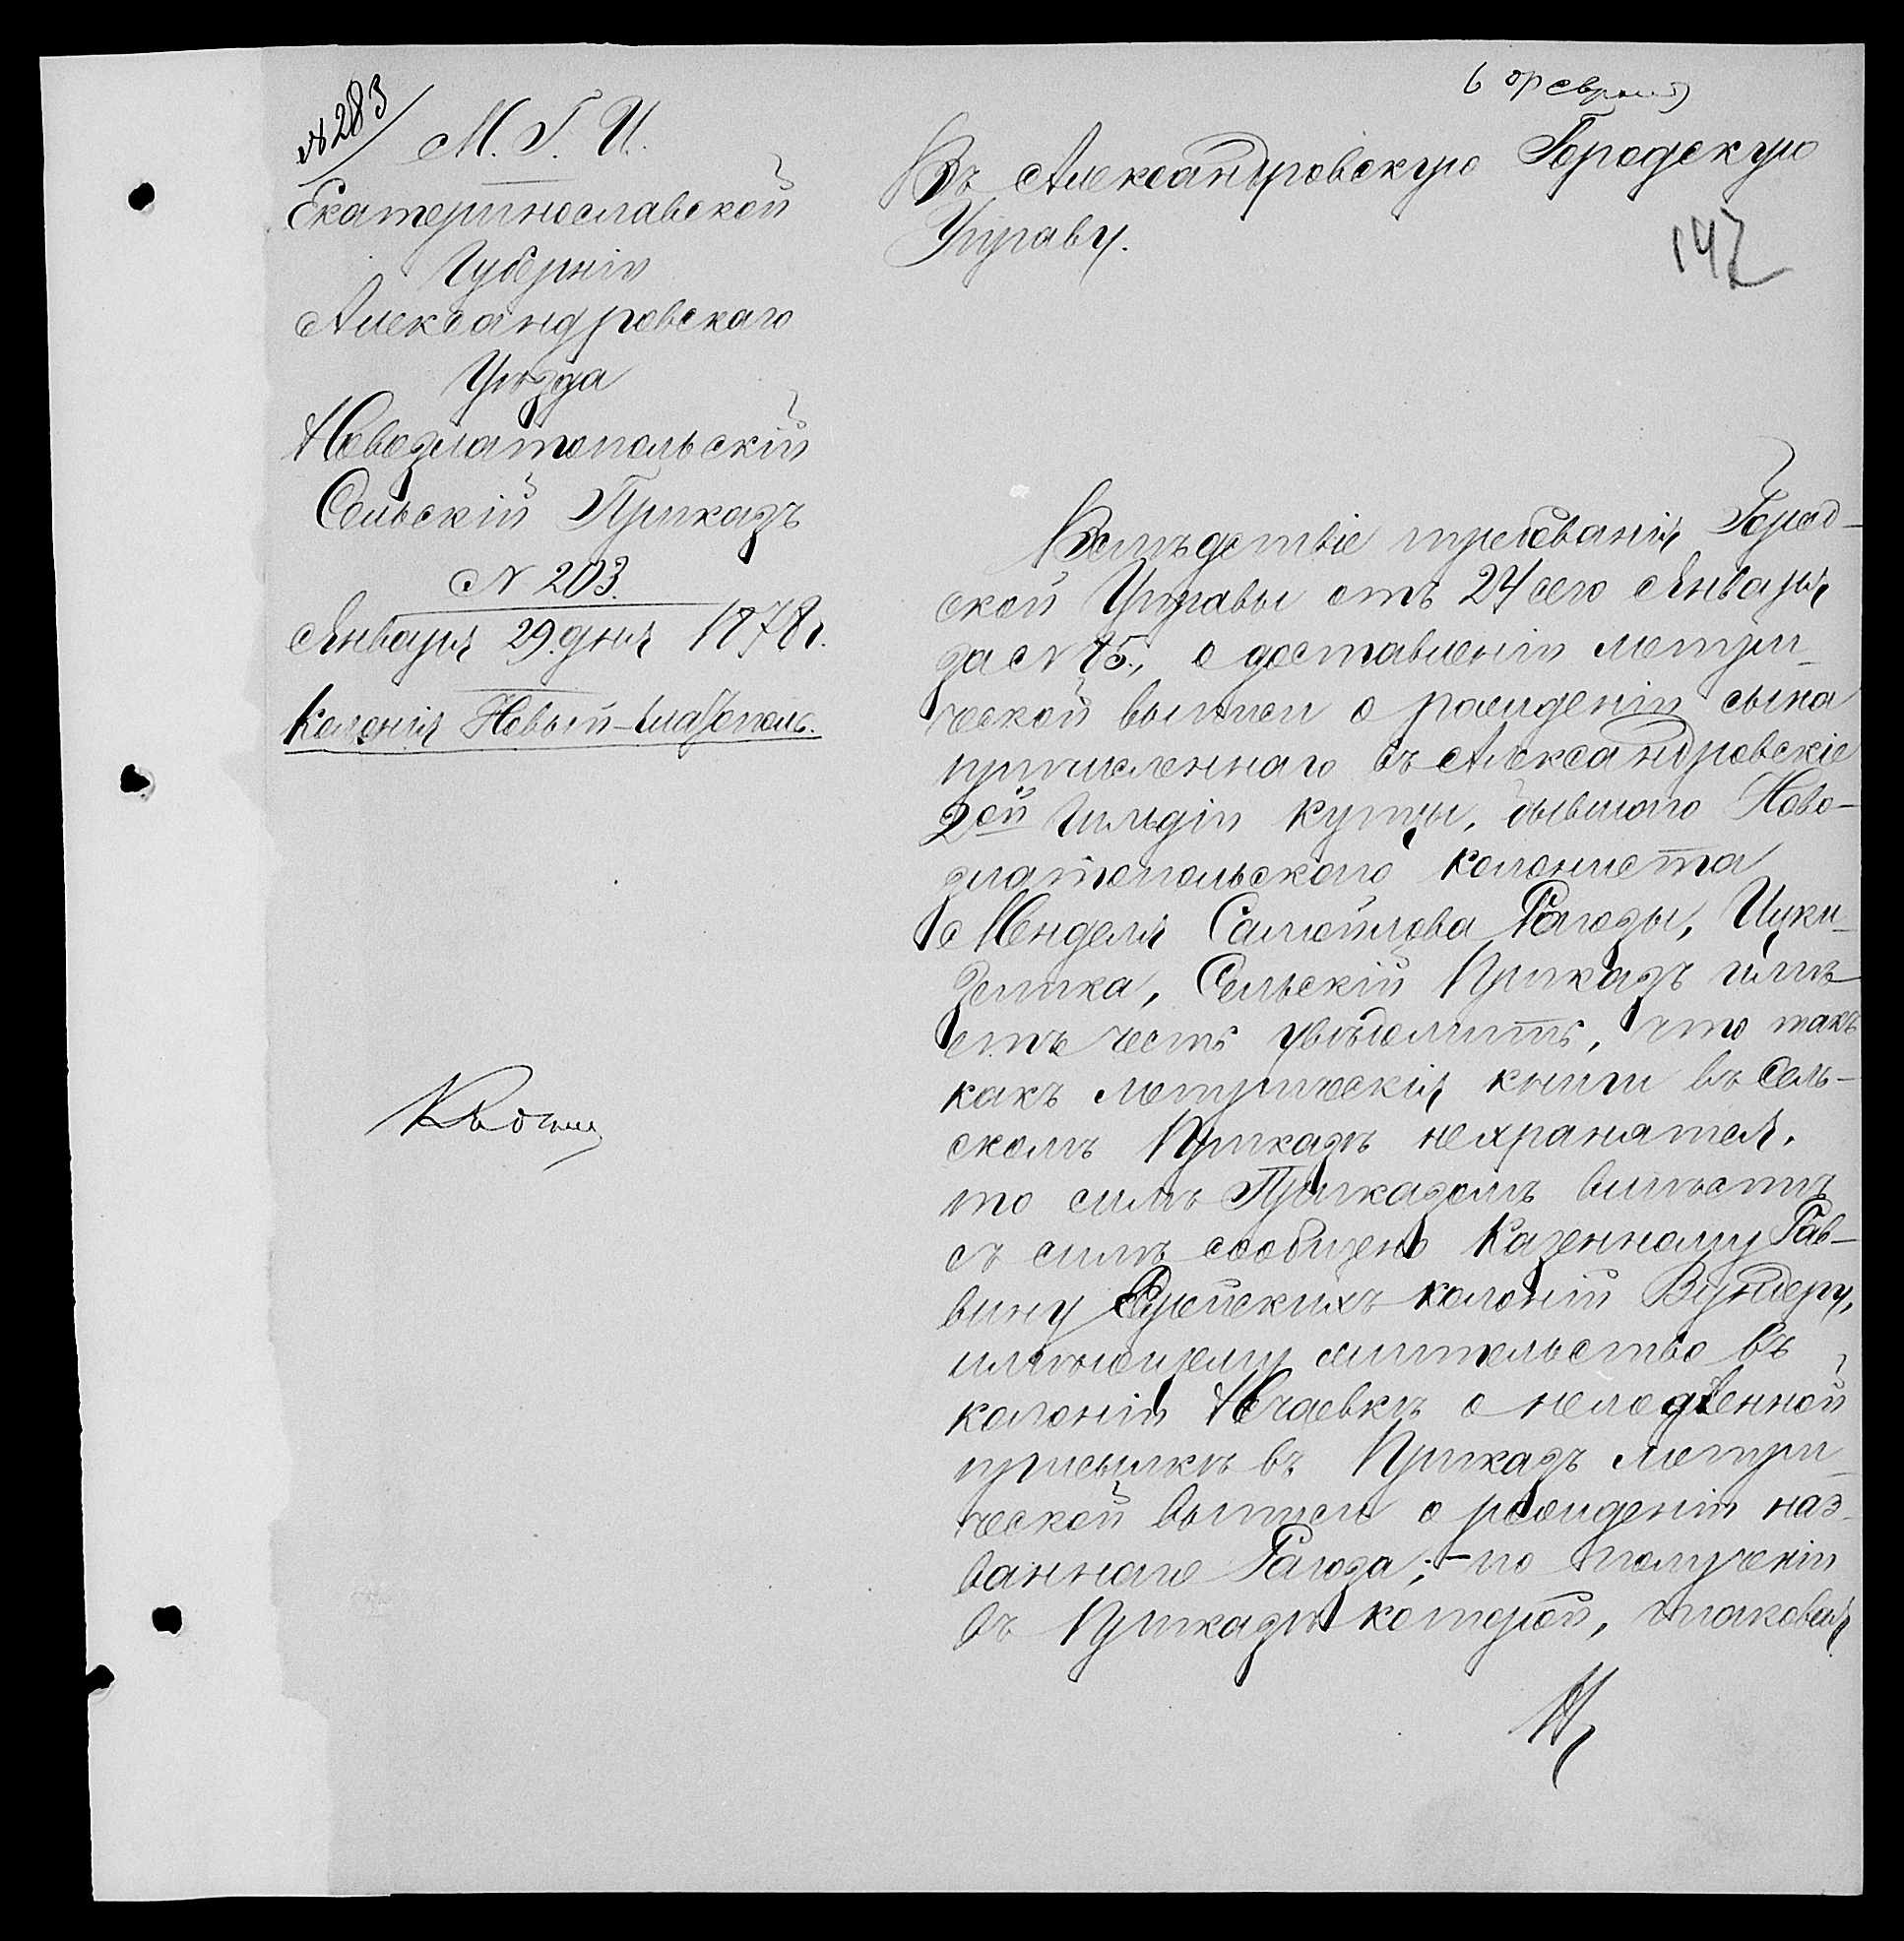 № 283
М. Г. И.
Екатеринославской
Губерніи
Александровскаго
Уѣзда
Новозлатопольскій
Сельскій Приказъ
№ 203.
Января 29 дня 1878 г.
Колонія Новый-Златополь.
6 февраля
Въ Александровскую Городскую
Управу.
142
Вслѣдствіе требованія Город-
ской Управы отъ 24 сего Января
за № 75, о доставленіи метри-
ческой выписи о рожденіи сына
причисленнаго въ Александровскіе
2ой Гильдіи купцы, бывшаго Ново-
златопольскаго колониста
Менделя Самойлова Рогозы, Ицки-
Зелика, Сельскій Приказъ имѣ-
етъ честь увѣдомить, что такъ
какъ метрическія книги въ Сель-
скомъ Приказѣ нехранятся,
то симъ Приказомъ вмѣстѣ
съ симъ сообщено Казенному Рав-
вину Еврейскихъ колоній Вундеру,
имѣющему жительство въ
колоніи Нечаевкѣ о немедленной
присылкѣ въ Приказъ метри-
ческой выписи о рожденіи наз-
ваннаго Рагоза; - по полученіи
въ Приказѣ которой, таковая